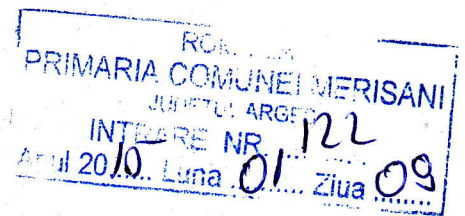 ROMANIA
PRIMARIA COMUNEI MERISANI
JUDETUL ARGES
INTRARE NR. 122
Anul 2015 Luna 01 Ziua 09